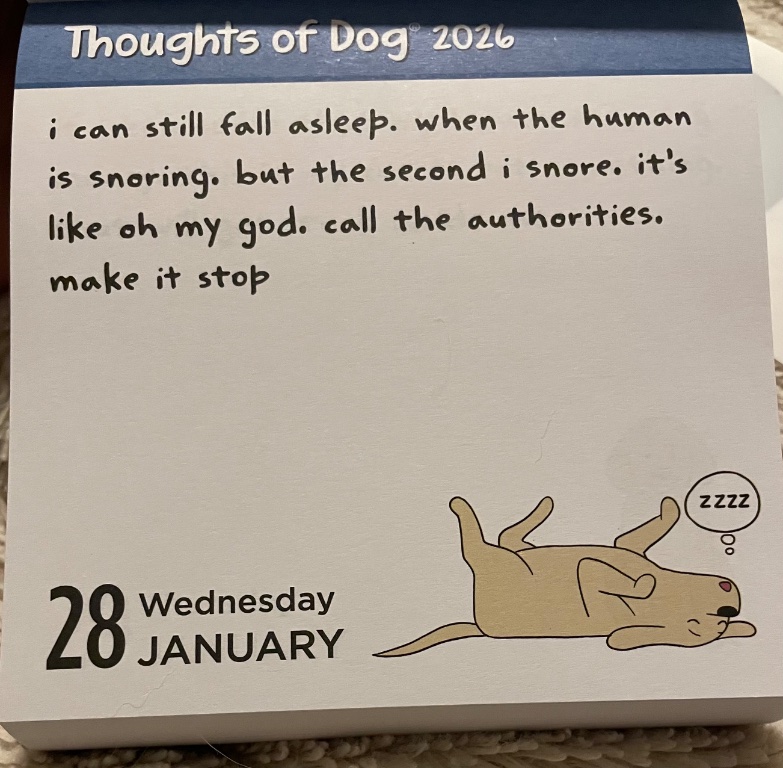 Thoughts of Dog® 2026
i can still fall asleep. when the human
is snoring. but the second i snore. it's
like oh my god. call the authorities.
make it stop
zzzz
28 Wednesday
JANUARY